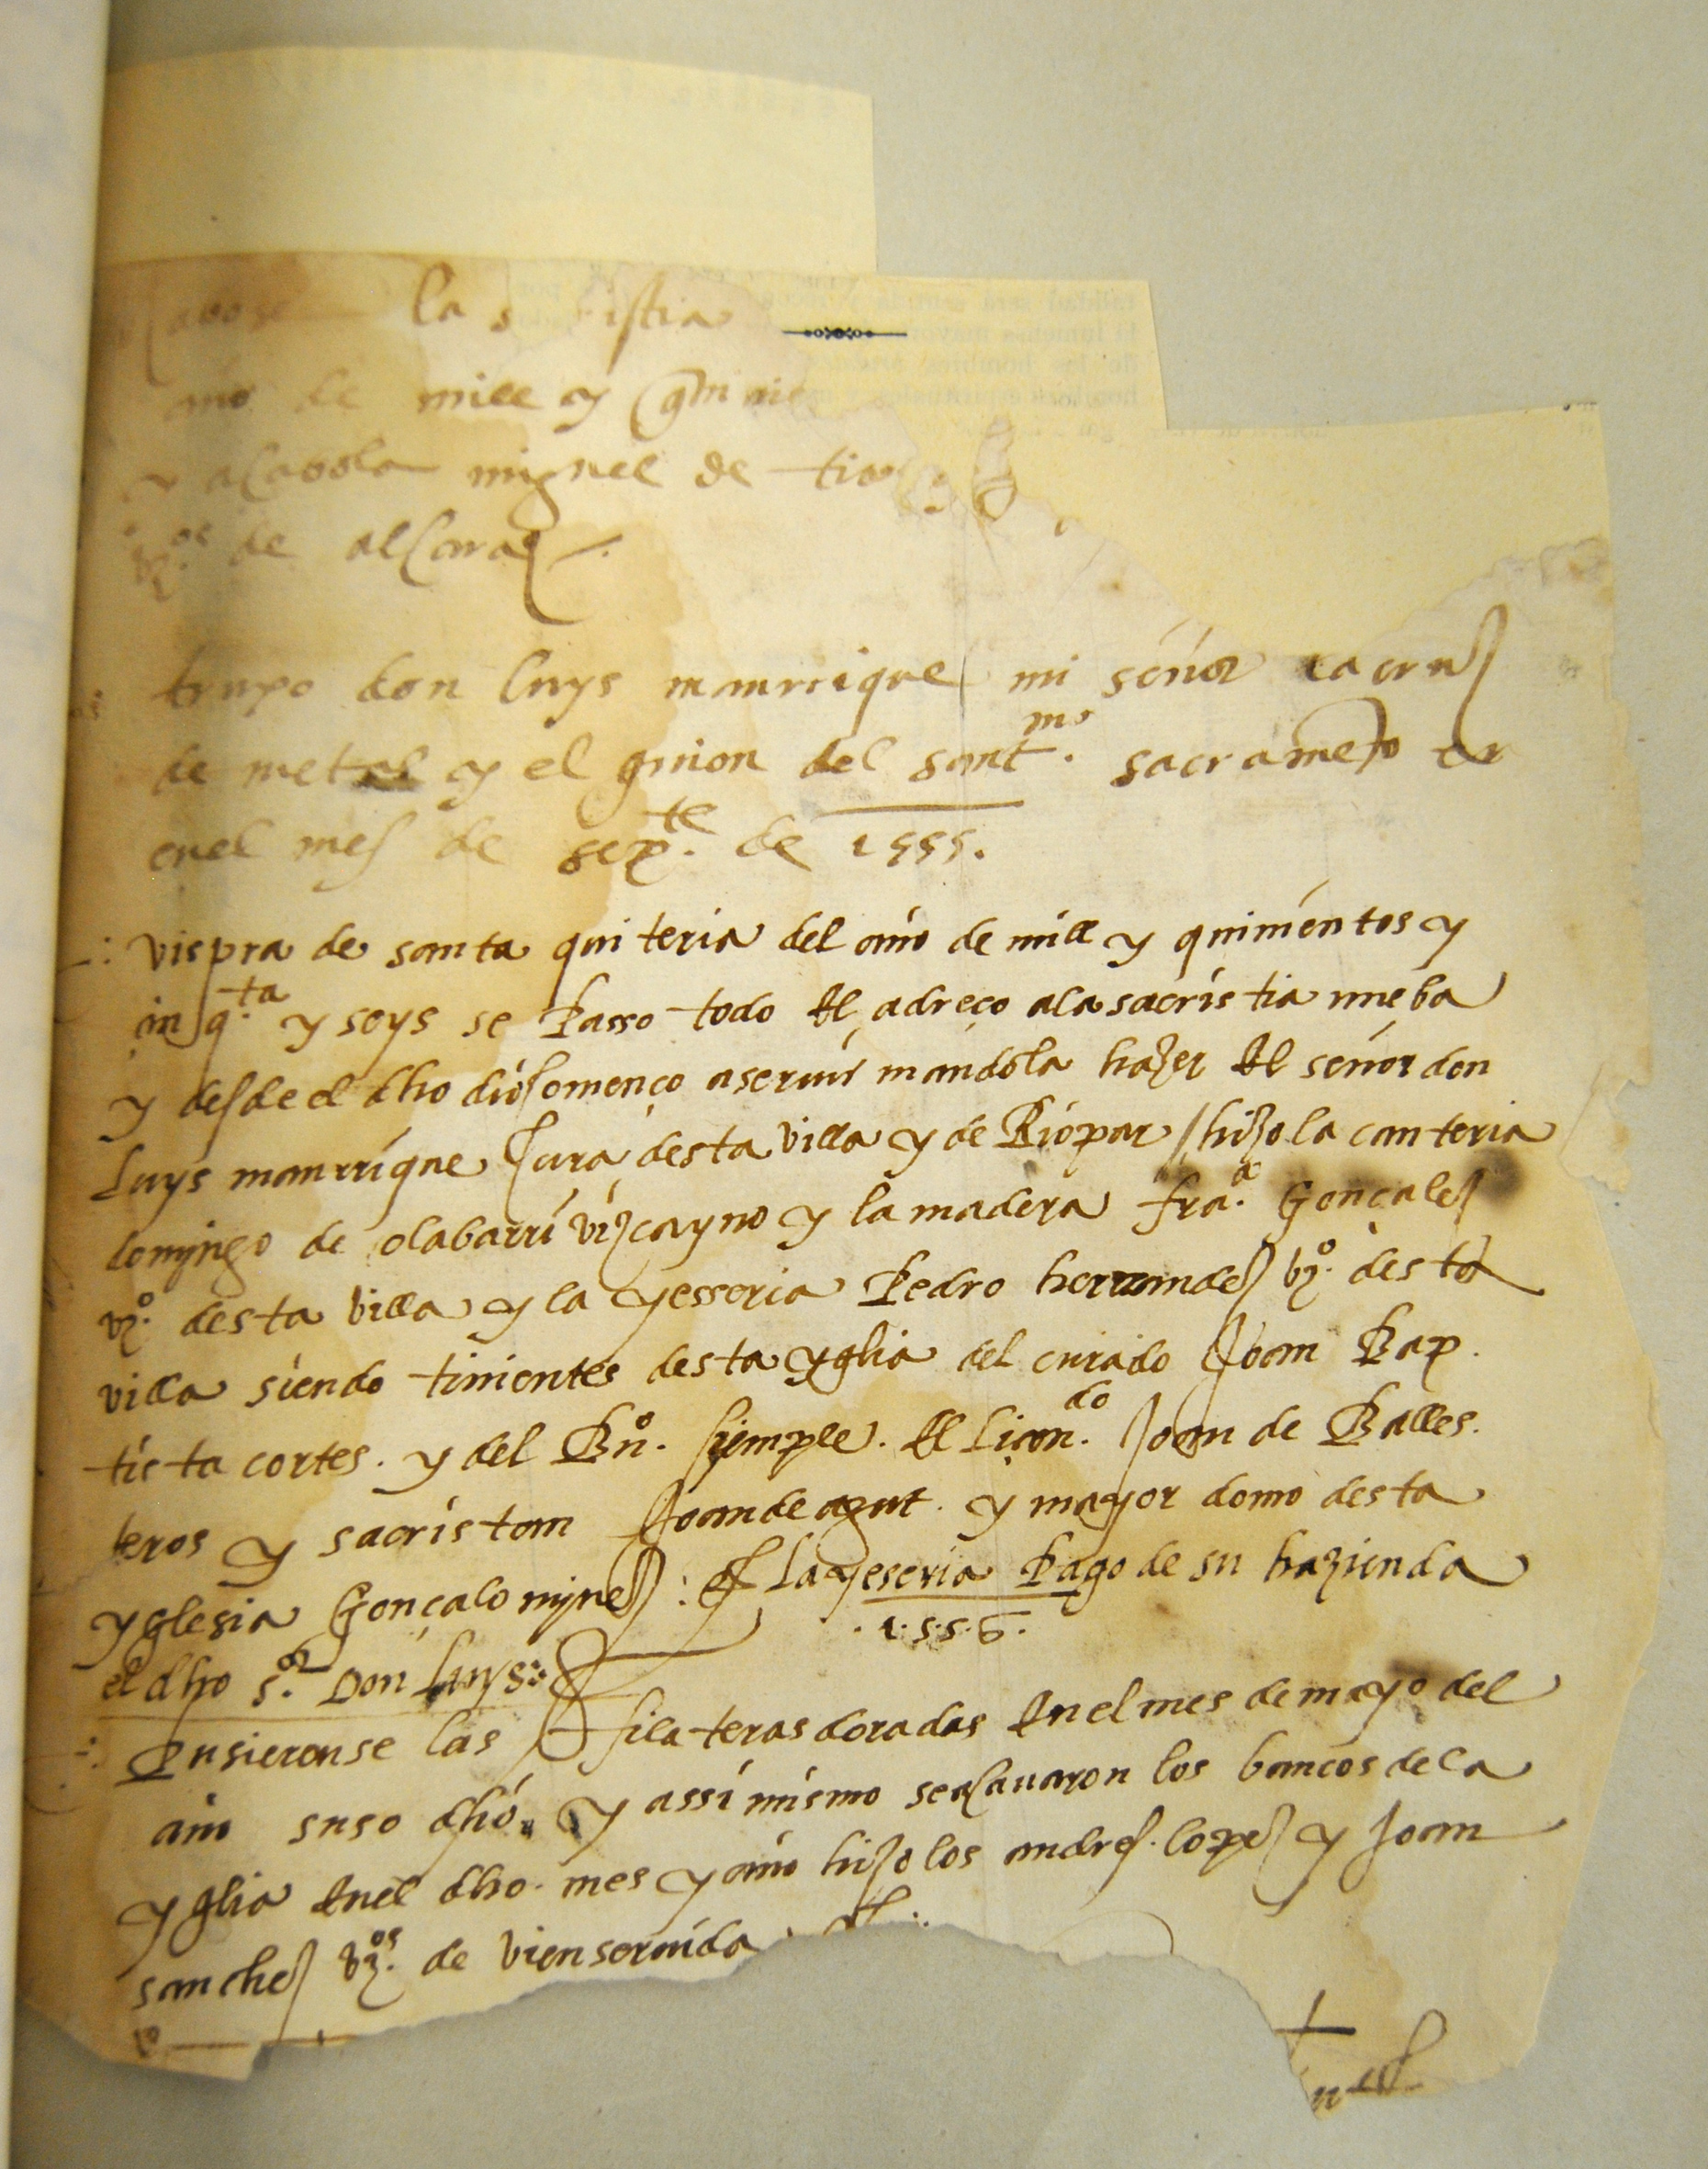 la s istia
año de mill y quinie
y acabola miguel de
vzos de alcaraz
truxo don luys manrrique mi señor la cruz
de metal y el guion del santmo. sacrameto
enel mes de septe. de 1555.
vispra de santa quiteria del año de mill y quinientos y
cinqta. y seys se Passo todo El adreço ala sacristia nueba
y desde el dho dia començo a seruir mandola hazer El señor don
Luys manrrique Cura desta villa y de Riopar / hizo la canteria
domyngo de olabarri vizcayno y la madera fraco. Gonçalez
vzo. desta villa y la yesseria Pedro hernandez vzo. desta
villa siendo tinientes desta yglia del curado Joan Bap.
tista cortes. y del Bno. simple. El Licendo. Joan de Balles.
teros y sacristan Joan de aznt. y mayordomo desta
yglesia Gonçalo mynez : La yeseria Pago de su hazienda
. 1.5.5.6.
el dho sor. Don Luys :~
Pusieronse las filateras doradas En el mes de mayo del
año suso dho. y assi mismo se acauaron los bancos de la
yglia Enel dho. mes y año hizolos andres. lopez y Joan
sanchez vzos. de vienseruida